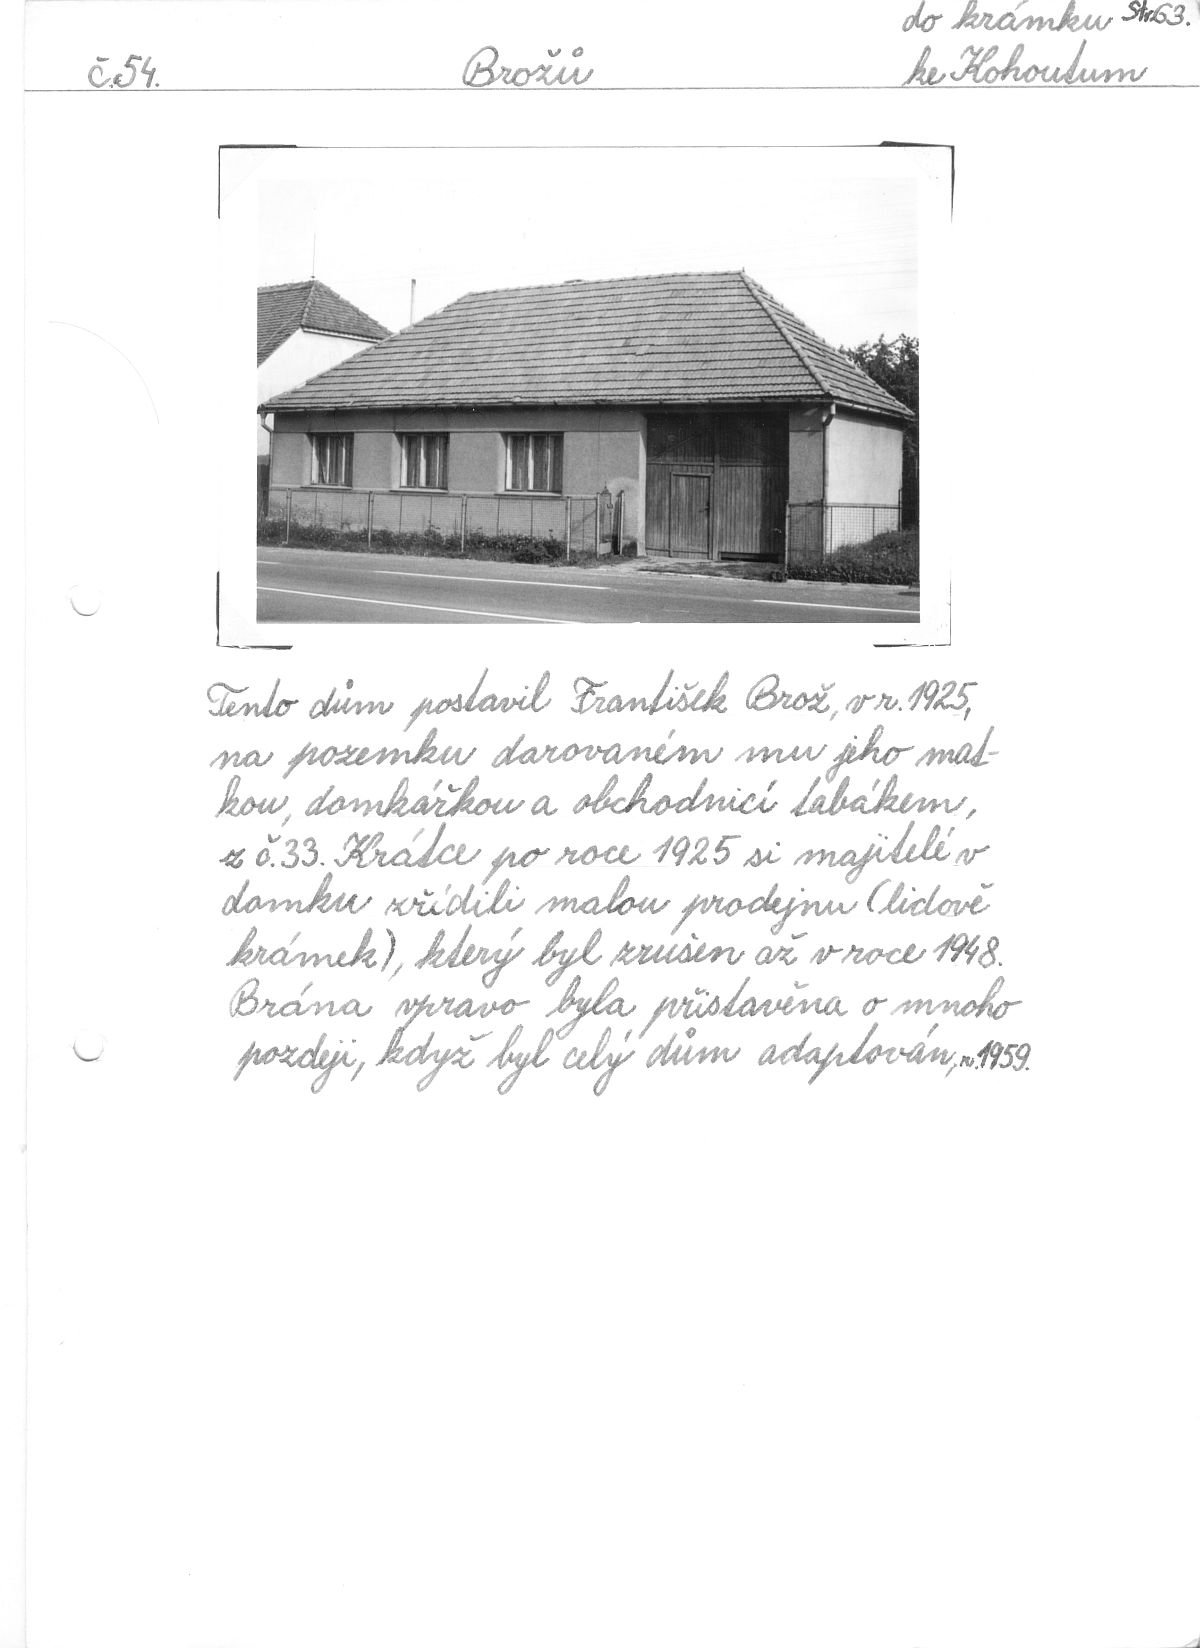 do krámku Str.63.
č.54. Brožů ke Kohoutum
Tento dům postavil František Brož, v r. 1925,
na pozemku darovaném mu jeho mat-
kou, domkářkou a obchodnicí tabákem,
z č.33. Krátce po roce 1925 si majitelé v
domku zřídili malou prodejnu (lidově
krámek), který byl zrušen až v roce 1948.
Brána vpravo byla přistavěna o mnoho
pozdeji, když byl celý dům adaptován, r.1959.